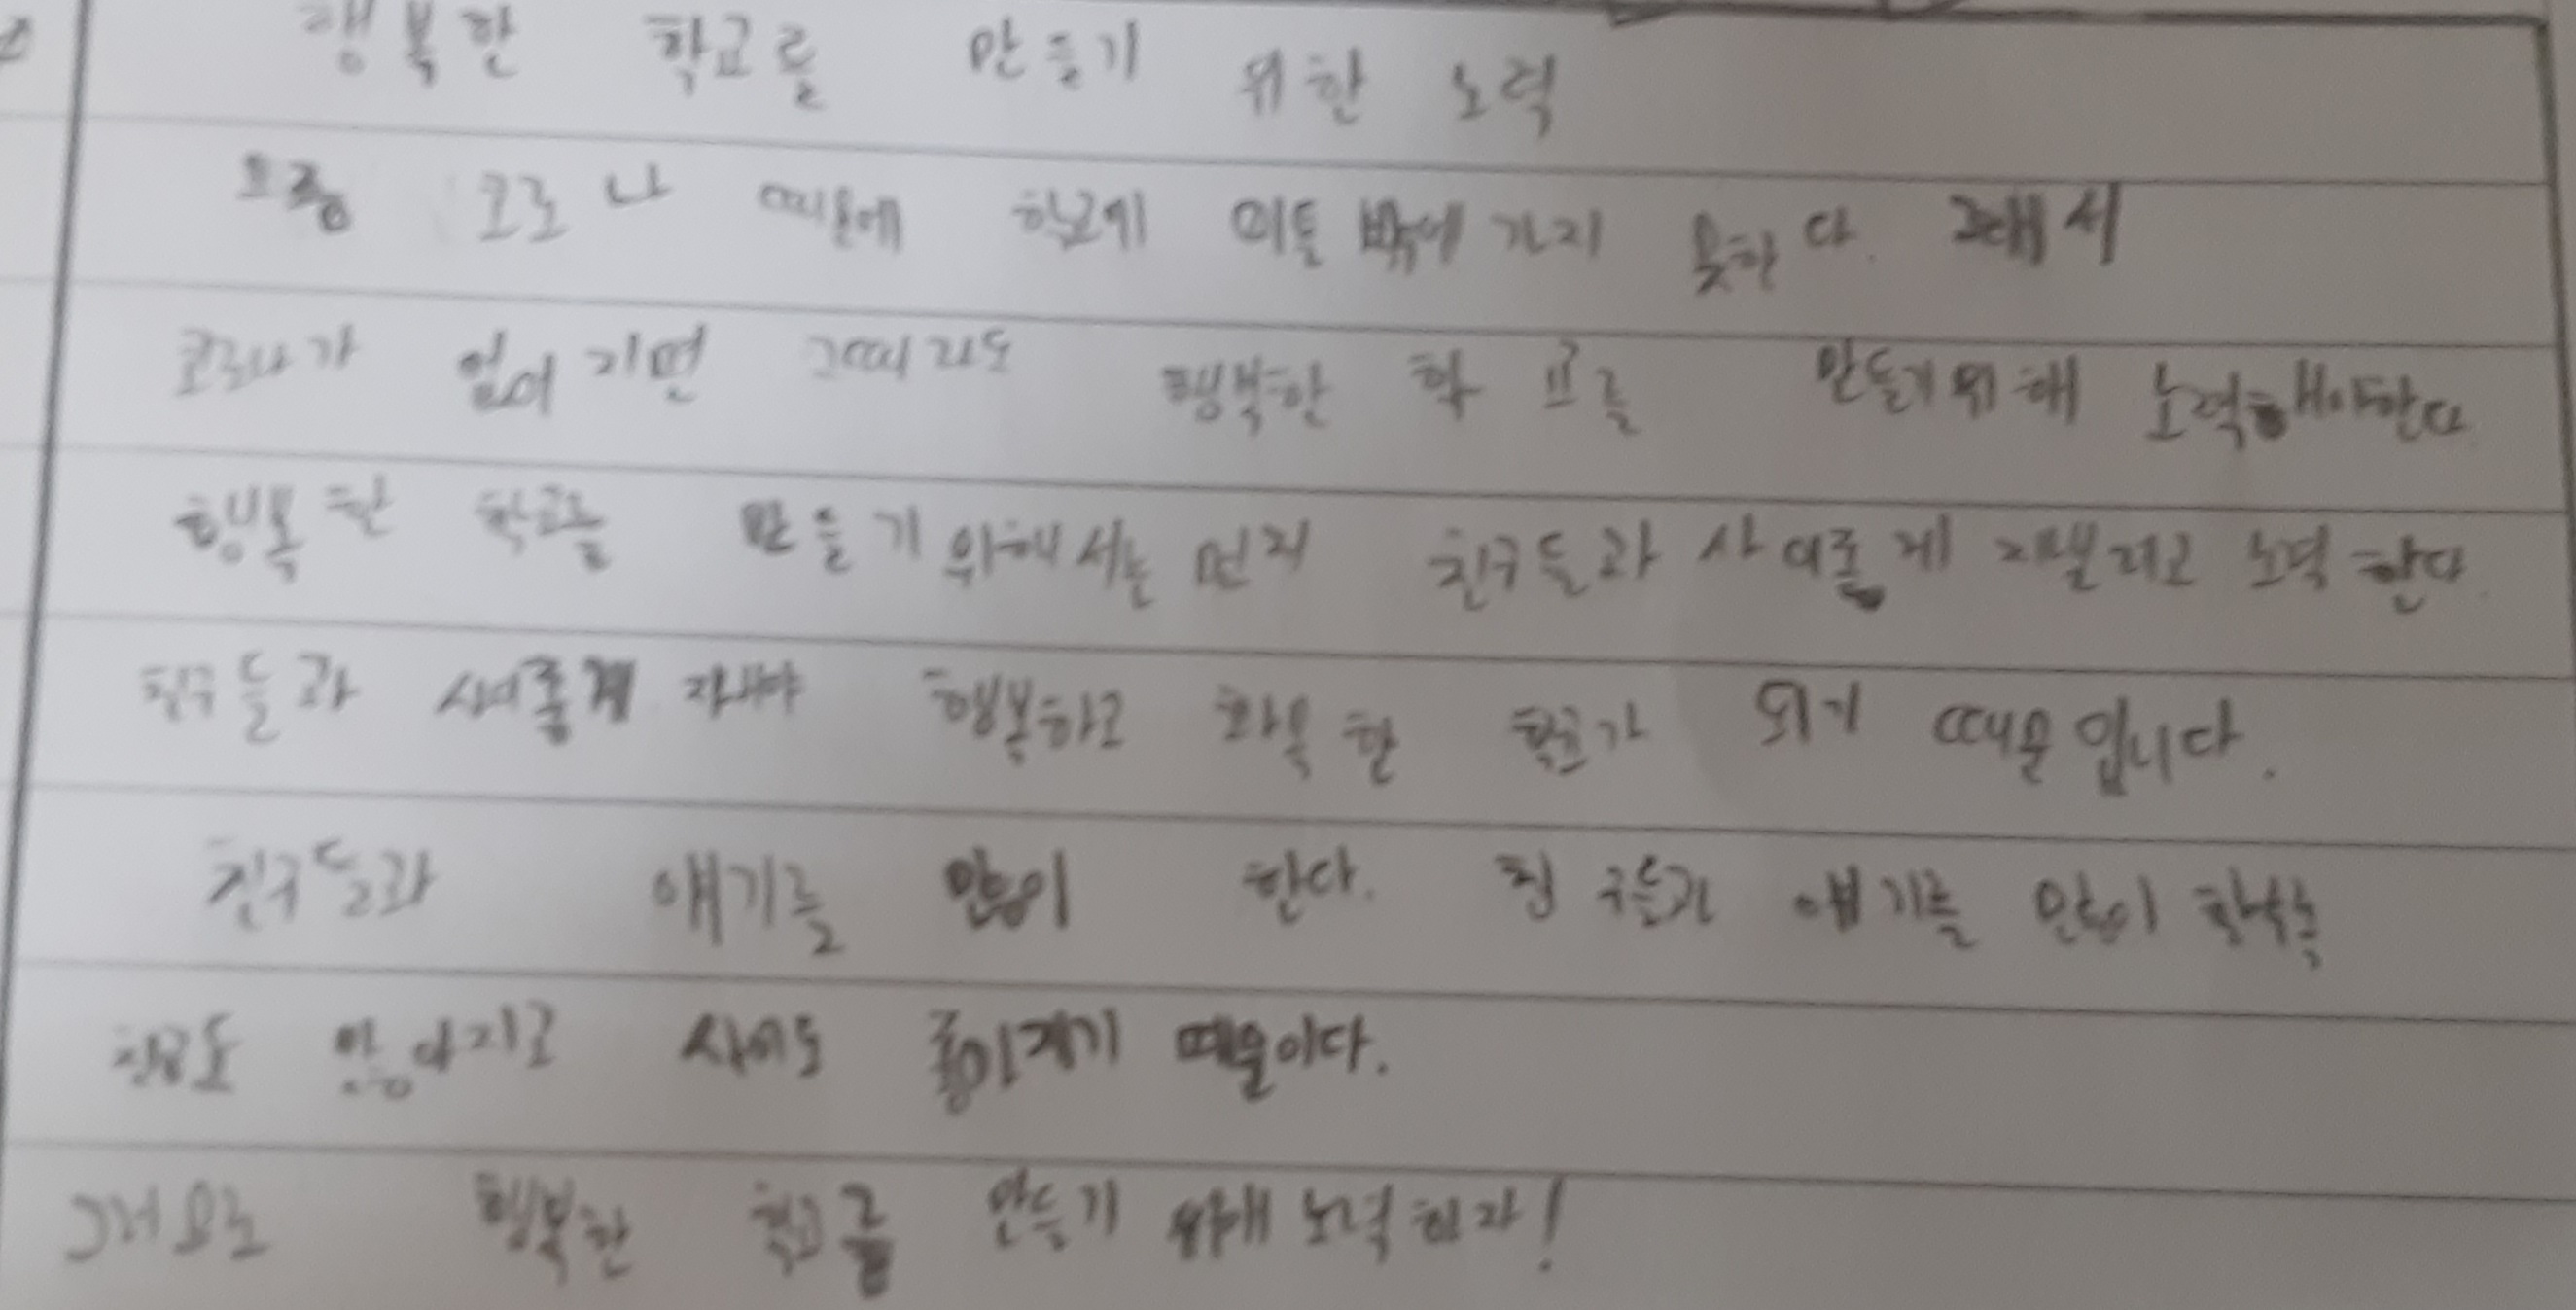 행복한 학교를 만들기 위한 노력
요즘 코로나 때문에 학교에 이틀 빡에 가지 못한다. 그래서
코로나가 없어지면 그때라도 행복한 학교를 만들기위해 노력해야한다
행복한 학교를 만들기 위해서는 먼저 친구들과 사이좋게 지낼려고 노력한다.
친구들과 사이좋게 지내야 행복하고 화목한 학교가 되기 때문입니다.
친구들과 얘기를 많이 한다. 친구들과 얘기를 많이 할수록
사이도 좋아지기 때문이다.
그러므로 행복한 학교를 만들기 위해 노력하자!